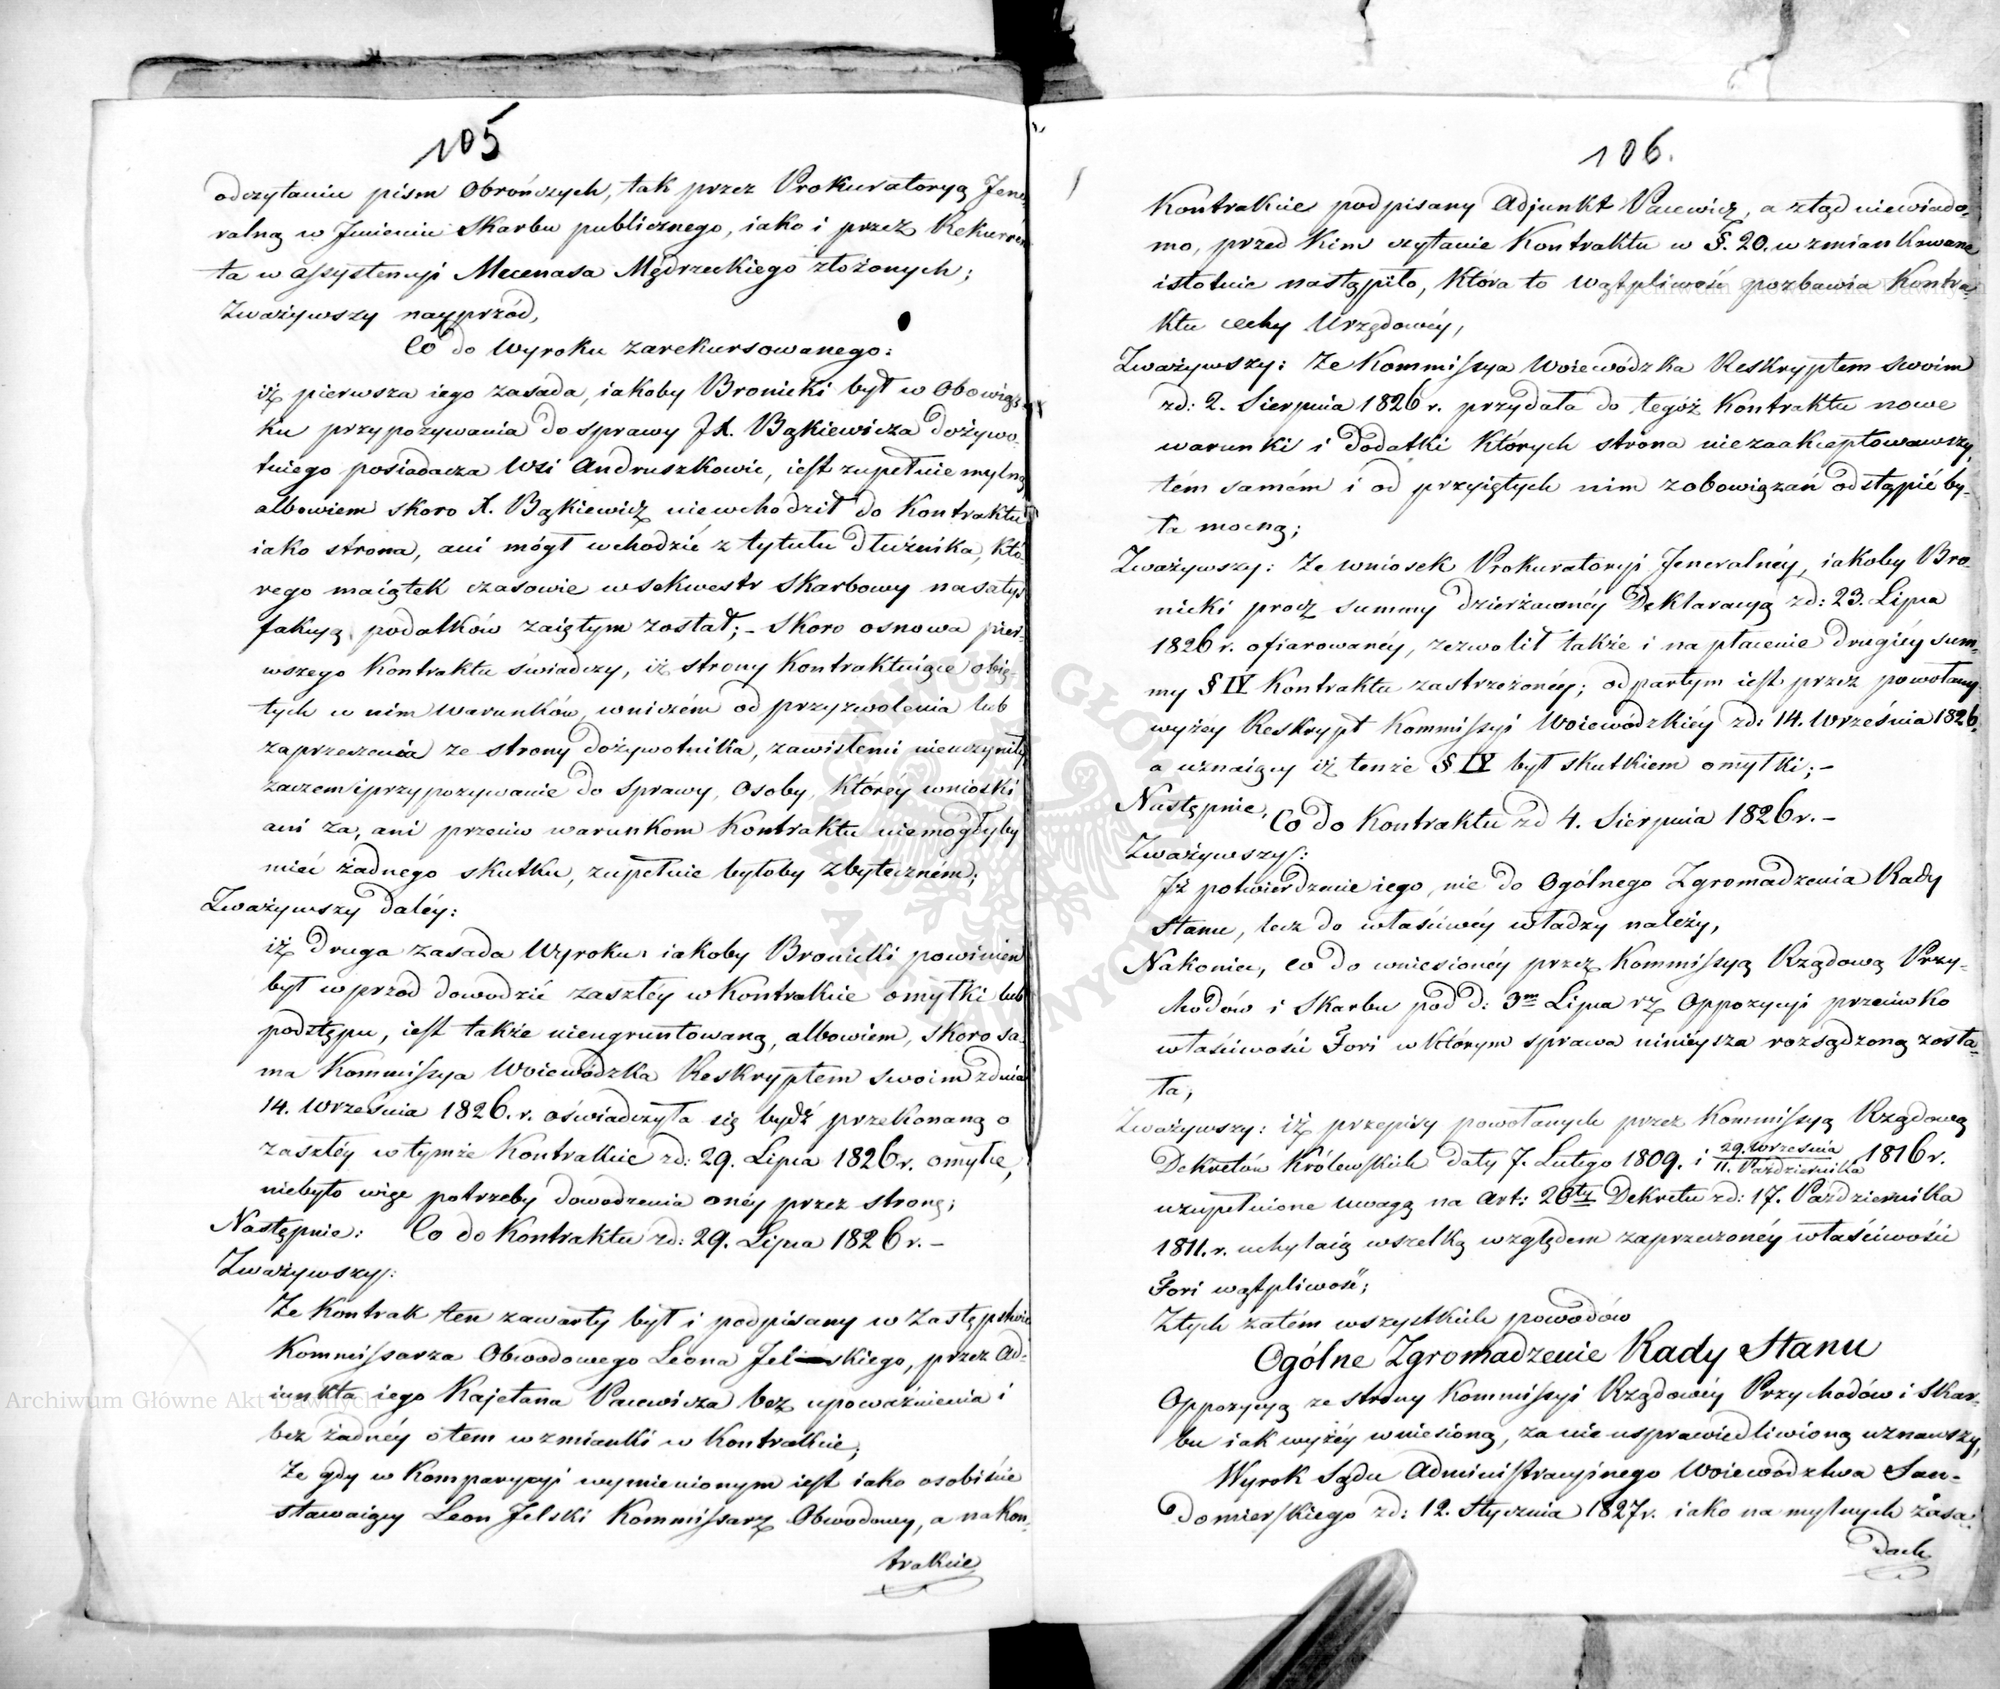 105
odczytaniu pism Obrończych, tak przez Prokuratoryą Jene-
ralną w Jmieniu Skarbu publicznego, iako i przez Rekurren
ta w assystencyi Mecenasa Mędrzeckiego złożonych;
Zważywszy nayprzód,
Co do Wyroku zarekursowanego:
iż pierwsza iego zasada, iakoby Bronicki był w Obowiąz-
ku przypozywania do sprawy JX. Bąkiewicza dożywo-
tniego posiadacza Wsi Andruszkowic, iest zupełnie mylną
albowiem skoro X. Bąkiewicz niewchodził do Kontraktu
iako strona, ani mógł wchodzić z tytułu dłużnika, któ-
rego maiątek czasowie w sekwestr Skarbowy na satys-
fakcyą podatków zaiętym został; - Skoro osnowa pier-
wszego Kontraktu świadczy, iż strony Kontraktuiące obię-
tych w nim warunków, wniczém od przyzwolenia lub
zaprzeczenia ze strony dożywotnika, zawisłemi nieuczyniły,
zaczem i przypozywanie do sprawy, Osoby, któréy wnioski
ani za, ani przeciw warunkom Kontraktu niemogłyby
mieć żadnego skutku, zupełnie byłoby zbyteczném;
Zważywszy daléy:
iż druga zasada Wyroku iakoby Bronicki powinien
był wprzód dowodzić zaszłéy w Kontrakcie omyłki lub
podstępu, iest także nieugruntowaną, albowiem, skoro sa-
ma Kommissya Woiewódzka Reskryptem swoim z dnia
14. Września 1826. r. oświadczyła się bydź przekonaną o
zaszłéy w tymże Kontrakcie zd: 29. Lipca 1826 r. omyłce,
niebyło więc potrzeby dowodzenia onéy przez stronę;
Następnie: Co do Kontraktu zd: 29. Lipca 1826 r. -
Zważywszy:
Że Kontrak ten zawarty był i podpisany w Zastępstwie
Kommissarza Obwodowego Leona Jelskiego, przez Ad-
iunkta iego Kajetana Pacewicza bez upoważnienia i
bez żadnéy otem wzmianki w Kontrakcie;
Że gdy w Komparycyi wymienionym iest iako osobiście
stawaiący Leon Jelski Kommissarz Obwodowy, a na Kon-
trakcie
106.
Kontrakcie podpisany Adjunkt Pacewicz, a ztąd niewiado-
mo, przed kim czytanie Kontraktu w §. 20. wzmiankowane
istotnie nastąpiło, która to wątpliwość pozbawia Kontra-
ktu cechy Urzędowéy,
Zważywszy: Że Kommissya Woiewódzka Reskryptem swoim
zd: 2. Sierpnia 1826 r. przydała do tegóż Kontraktu nowe
warunki i dodatki których strona niezaakceptowawszy,
tém samém i od przyiętych nim zobowiązań odstąpić by-
ła mocną;
Zważywszy: Że wniosek Prokuratoryi Jeneralnéy, iakoby Bro-
nicki procz summy dzierżawnéy Deklaracyą zd: 23. Lipca
1826 r. ofiarowanéy, zezwolił także i na płacenie drugiéy sum-
my § IV Kontraktu zastrzeżonéy; odpartym iest przez powołany
wyżéy Reskrypt Kommissyi Woiewódzkiéy zd: 14. Września 1826.
a uznaiący iż tenże § IV był skutkiem omyłki; -
Następnie, Co do Kontraktu zd 4. Sierpnia 1826 r. -
Zważywszy:
Jż potwierdzenie iego, nie do Ogólnego Zgromadzenia Rady
Stanu, lecz do właściwéy władzy należy,
Nakoniec, co do wniesionéy przez Kommissyą Rządową Przy-
chodów i Skarbu pod d: 3m Lipca rż Oppozycyi przeciwko
właściwości Fori w którym sprawa ninieysza rozsądzoną zosta-
ła;
Zważywszy: iż przepisy powołanych przez Kommissyą Rządową
Dekretów Królewskich daty 7. Lutego 1809. i 29. Września / 11. Października 1816 r.
uzupełnione uwagą na Art: 20ty Dekretu zd: 17. Października
1811. r. uchylaią wszelką względem zaprzeczonéy właściwości
Fori wątpliwość;
Ztych zatém wszystkich powodów
Ogólne Zgromadzenie Rady Stanu
Oppozycyą ze strony Kommissyi Rządowéy Przychodów i Skar-
bu iak wyżéy wniesioną, za nieusprawiedliwioną uznawszy,
Wyrok Sądu Administracyinego Woiewództwa San-
domierskiego zd: 12. Stycznia 1827 r. iako na mylnych zasa-
dach
Archiwum Główne Akt Dawnych